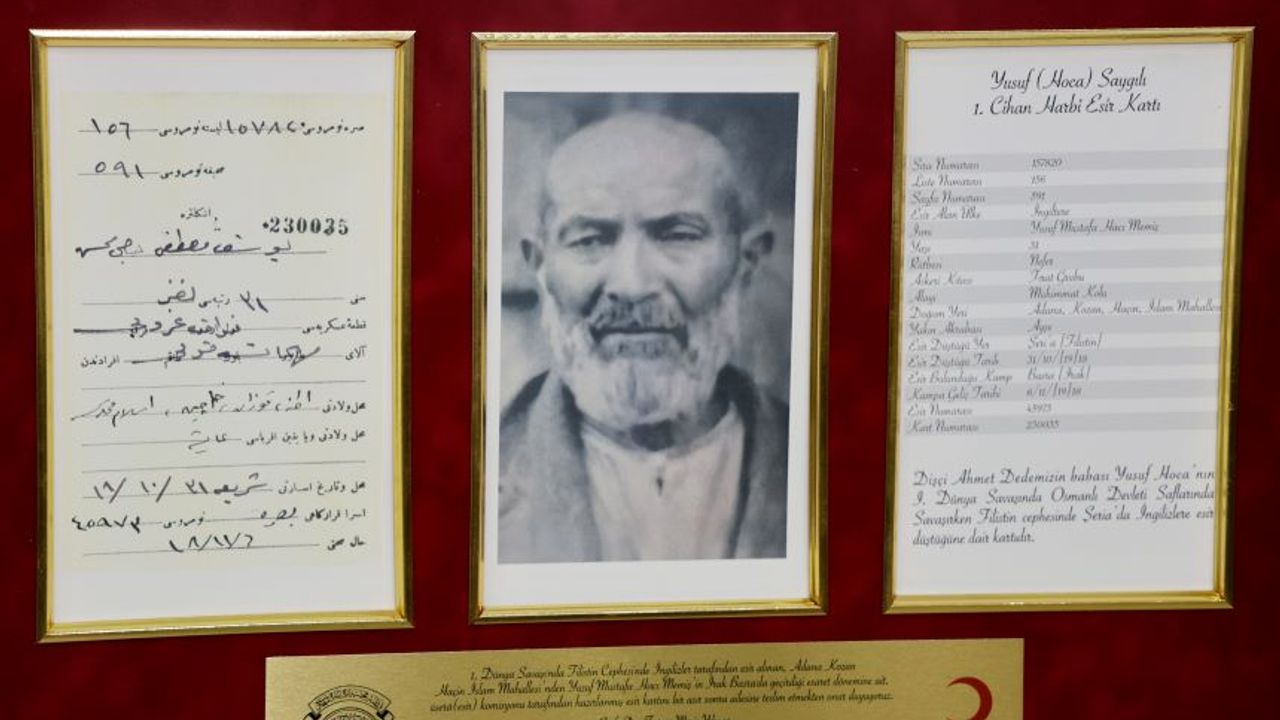 صره نومروسی ١٥٧٨٢٠ لیسته نومروسی ١٥٦
صحیفه نومروسی ٥٩١
انكلتره
230035
یوسف مصطفی
سنی ٣١ رتبه‌سی نفر
قطعهٔ عسكریه‌سی
آلای افرادندن
محل ولادتی اطنه، قوزان، اسلام
محل ولادتی ویا یقین اقرباسی
محل وتاریخ اسارتی شریعه ٣١/١٠/١٨
اسرا قرارگاهی بصره نومروسی ٤٥٩٧٣
حال صحی ١٨/١١/٦
Yusuf (Hoca) Saygılı
1. Cihan Harbi Esir Kartı
Sıra Numarası 157820
Liste Numarası 156
Sayfa Numarası 591
Esir Alan Ülke İngiltere
İsmi Yusuf Mustafa Hacı Memiş
Yaşı 31
Rütbesi Nefer
Askeri Kıtası Fırat Grubu
Alayı Mühimmat Kolu
Doğum Yeri Adana, Kozan, Haçin, İslam Mahallesi
Yakın Akrabası Ayşe
Esir Düştüğü Yer Şeri'a [Filistin]
Esir Düştüğü Tarih 31/10/[19]18
Esir Bulunduğu Kamp Basra [Irak]
Kampa Geliş Tarihi 6/11/[19]18
Esir Numarası 45973
Kart Numarası 230035
Dişçi Ahmet Dedemizin babası Yusuf Hoca'nın
I. Dünya Savaşında Osmanlı Devleti Saflarında
Savaşırken Filistin cephesinde Şeria'da İngilizlere esir
düştüğüne dair kartıdır.
1. Dünya Savaşı'nda Filistin Cephesi'nde İngilizler tarafından esir alınan, Adana Kozan
Haçin İslam Mahallesi'nden Yusuf Mustafa Hacı Memiş'in Irak Basra'da geçirdiği esaret dönemine ait,
üsera(esir) komisyonu tarafından hazırlanmış esir kartını bir asır sonra ailesine teslim etmekten onur duyuyoruz.